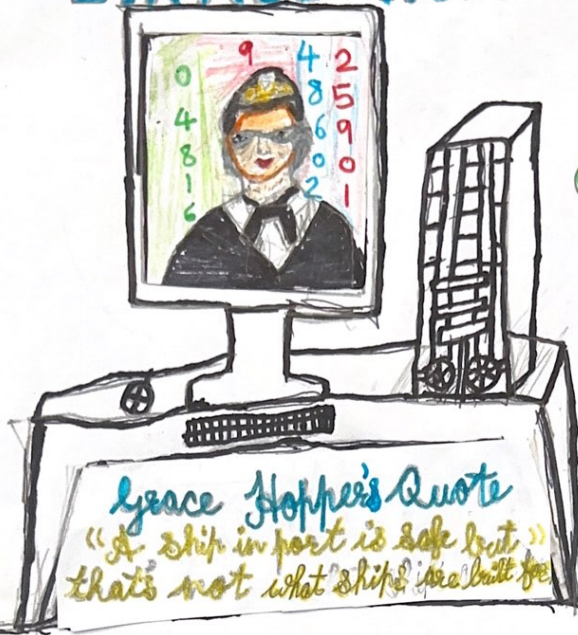 0 9 4 2
4 8 5
8 6 9
1 0 0
6 2 1
Grace Hopper's Quote
“A ship in port is safe but”
that's not what ships are built for